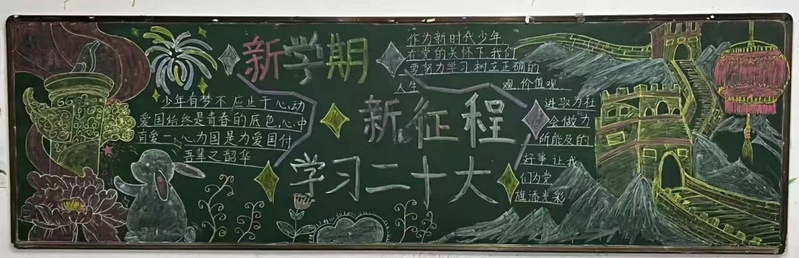 新学期
新征程
学习二十大
少年有梦不应止于心动
爱国始终是青春的底色,心中
有爱一心为国是力爱国付
吾辈之韶华
作为新时代少年
在党的关怀下我们
要努力学习树立正确的
人生 观,价值观
进取为社
会做力
所能及的
好事让我
们为党
旗添光彩